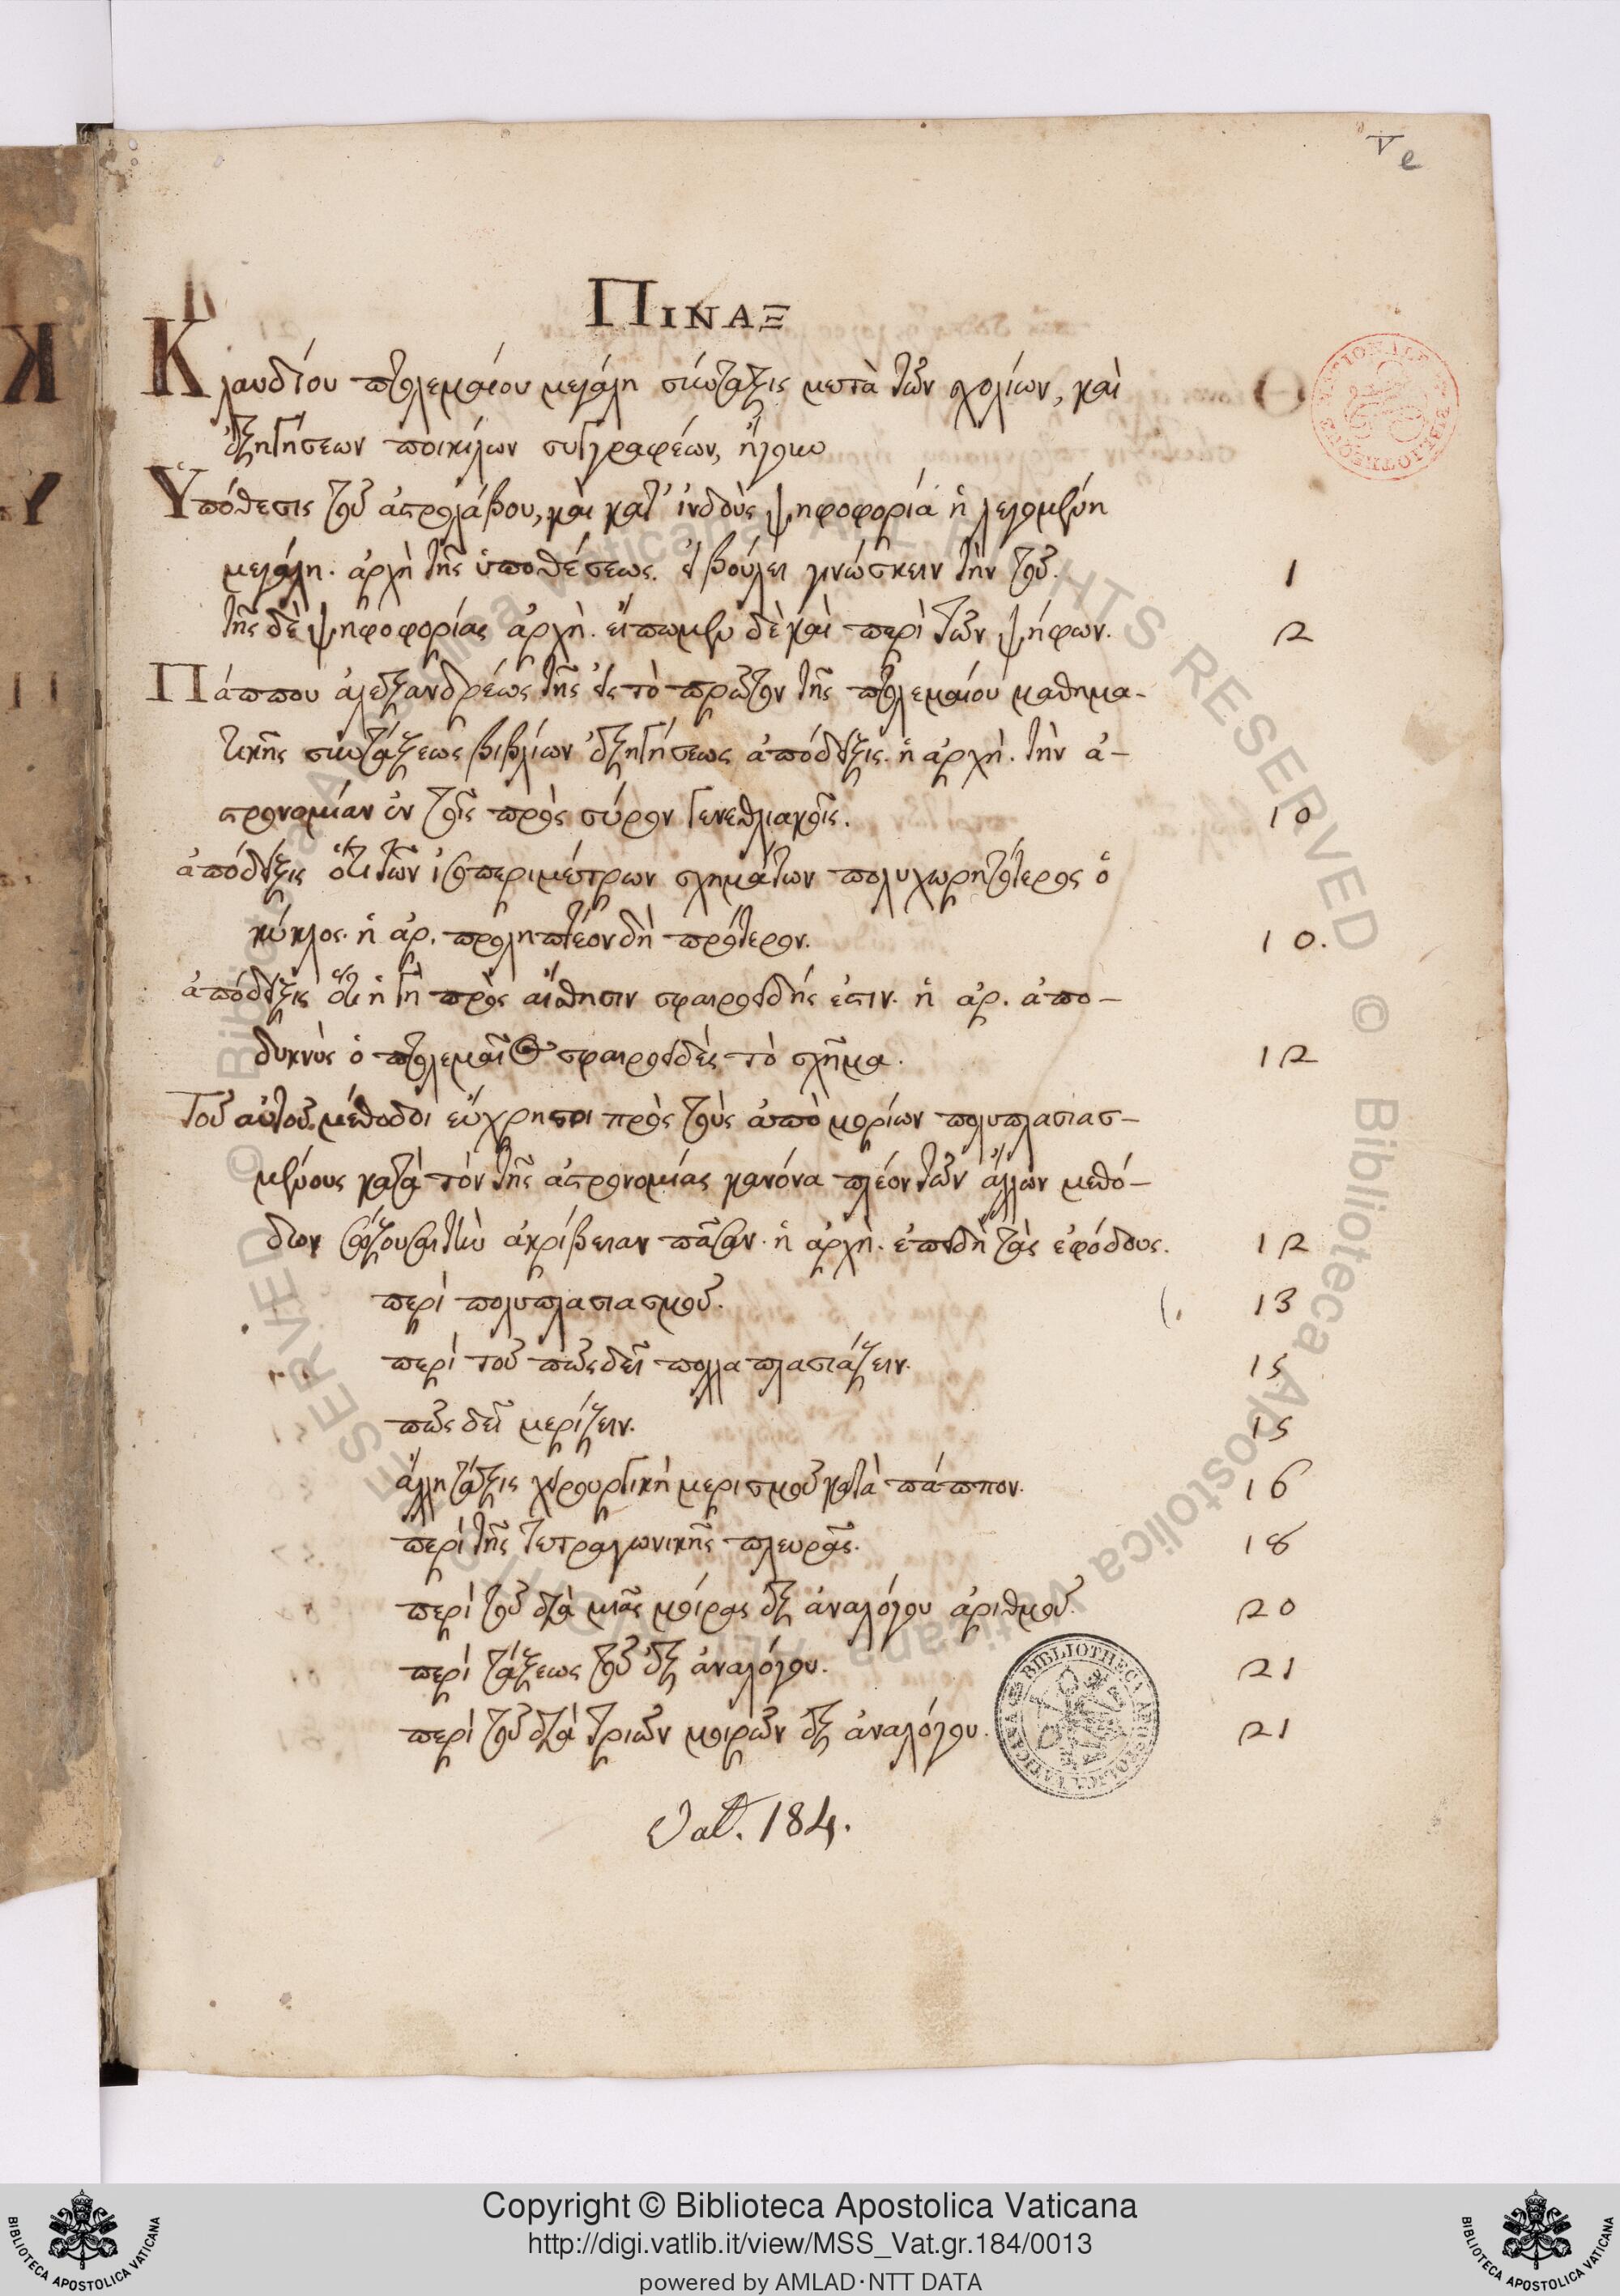 V e
ΠΙΝΑΞ
Κλαυδίου πτολεμαίου μεγάλη σύνταξις μετὰ τῶν σχολίων, καὶ
ἐξηγήσεων ποικίλων συγγραφέων, ἤγουν
Ὑπόθεσις τοῦ ἀστρολάβου, καὶ κατ' ἰνδοὺς ψηφοφορία ἡ λεγομένη
μεγάλη. ἀρχὴ τῆς ὑποθέσεως. εἰ βούλει γινώσκειν τὴν τοῦ. 1
τῆς δὲ ψηφοφορίας ἀρχὴ. εἴπωμεν δὲ καὶ περὶ τῶν ψήφων. 2
Πάππου ἀλεξανδρέως τῆς εἰς τὸ πρῶτον τῆς πτολεμαίου μαθημα-
τικῆς συντάξεως βιβλίων ἐξηγήσεως ἀπόδειξις. ἡ ἀρχὴ. τὴν ἀ-
στρονομίαν ἐν τοῖς πρὸς σύρον γενεθλιακοῖς. 10
ἀπόδειξις ὅτι τῶν ἰσοπεριμέτρων σχημάτων πολυχωρητότερος ὁ
κύκλος. ἡ ἀρ. προληπτέον δὴ πρότερον. 10.
ἀπόδειξις ὅτι ἡ γῆ πρὸς αἴσθησιν σφαιροειδής ἐστιν. ἡ ἀρ. ἀπο-
δεικνὺς ὁ πτολεμαῖος σφαιροειδὲς τὸ σχῆμα. 12
Τοῦ αὐτοῦ μέθοδοι εὔχρηστοι πρὸς τοὺς ἀπὸ μορίων πολυπλασιασ-
μένους κατὰ τὸν τῆς ἀστρονομίας κανόνα πλέον τῶν ἄλλων μεθό-
δων σώζουσαι τὴν ἀκρίβειαν πᾶσαν. ἡ ἀρχὴ. ἐπειδὴ τὰς ἐφόδους. 12
περὶ πολυπλασιασμοῦ. 13
περὶ τοῦ πῶς δεῖ πολλαπλασιάζειν. 15
πῶς δεῖ μερίζειν. 15
ἄλλη τάξις χειρουργικὴ μερισμοῦ κατὰ πάππον. 16
περὶ τῆς τετραγωνικῆς πλευρᾶς. 18
περὶ τοῦ διὰ μιᾶς μοίρας ἐξ ἀναλόγου ἀριθμοῦ. 20
περὶ τάξεως τοῦ ἐξ ἀναλόγου. 21
περὶ τοῦ διὰ τριῶν μοιρῶν ἐξ ἀναλόγου. 21
Vat. 184.
BIBLIOTHECA APOSTOLICA VATICANA
Copyright © Biblioteca Apostolica Vaticana
http://digi.vatlib.it/view/MSS_Vat.gr.184/0013
powered by AMLAD·NTT DATA
BIBLIOTECA APOSTOLICA VATICANA
BIBLIOTECA APOSTOLICA VATICANA